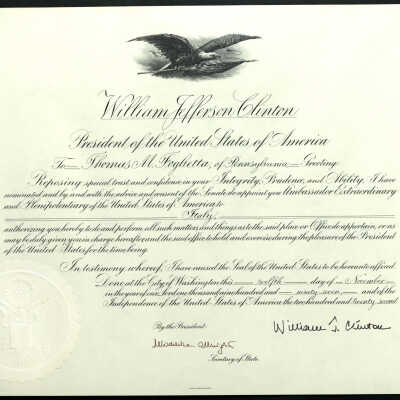 William Jefferson Clinton
President of the United States of America
To Thomas M. Foglietta, of Pennsylvania Greeting:
Reposing special trust and confidence in your Integrity, Prudence, and Ability, I have
nominated and by and with the advice and consent of the Senate do appoint you Ambassador Extraordinary
and Plenipotentiary of the United States of America to
Italy,
authorizing you hereby to do and perform all such matters and things as to the said place or Office do appertain, or as
may be duly given you in charge hereafter and the said office to hold and exercise during the pleasure of the President
of the United States for the time being.
In testimony whereof, I have caused the Seal of the United States to be hereunto affixed.
Done at the City of Washington this twelfth day of November
in the year of our Lord one thousand nine hundred and ninety-seven and of the
Independence of the United States of America the two hundred and twenty-second.
By the President:
William J. Clinton
Madeleine Albright
Secretary of State.